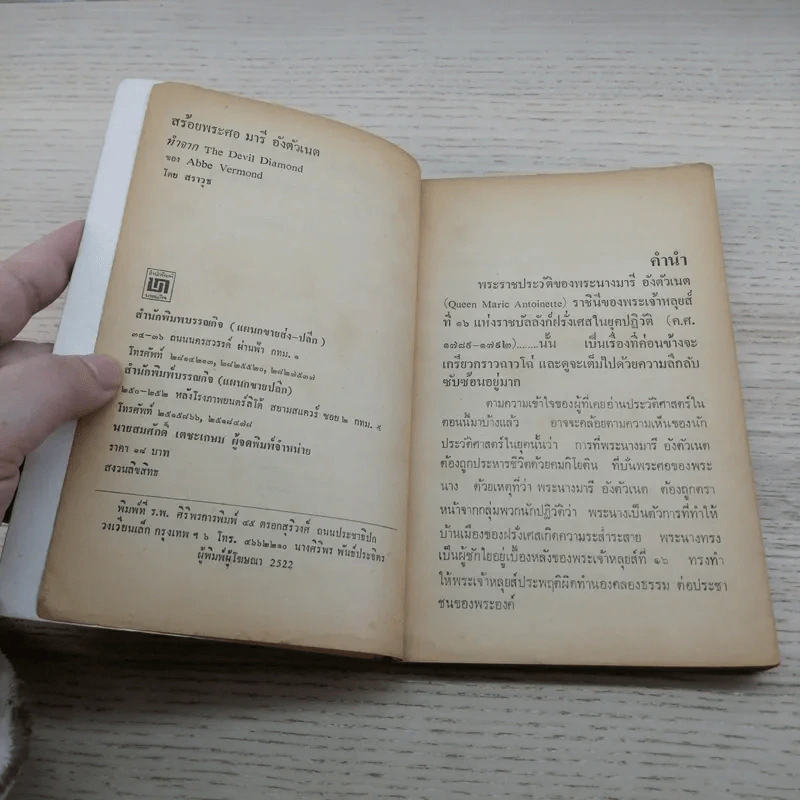 สร้อยพระศอ มารี อังตัวเนต
ทำจาก The Devil Diamond
ของ Abbe Vermond
โดย สราวุธ
สำนักพิมพ์บรรณกิจ (แผนกขายส่ง-ปลีก)
๓๔-๓๖ ถนนนครสวรรค์ ผ่านฟ้า กทม. ๑
โทรศัพท์ ๒๘๑๔๒๑๓, ๒๘๒๕๕๒๐, ๒๘๒๗๕๓๗
สำนักพิมพ์บรรณกิจ (แผนกขายปลีก)
๒๕๐-๒๕๒ หลังโรงภาพยนตร์ลิโด้ สยามสแควร์ ซอย ๒ กทม. ๕
โทรศัพท์ ๒๕๑๕๘๖๖, ๒๕๑๘๔๗๘
นายสมศักดิ์ เตชะเกษม ผู้จัดพิมพ์จำหน่าย
ราคา ๑๘ บาท
สงวนลิขสิทธ
พิมพ์ที่ ร.พ. ศิริพรการพิมพ์ ๔๕ ตรอกสุริวงศ์ ถนนประชาธิปก
วงเวียนเล็ก กรุงเทพ ฯ ๖ โทร. ๔๖๖๒๒๑๐ นางศิริพร พันธ์ประจิตร
ผู้พิมพ์ผู้โฆษณา 2522
คำนำ
พระราชประวัติของพระนางมารี อังตัวเนต
(Queen Marie Antoinette) ราชินีของพระเจ้าหลุยส์
ที่ ๑๖ แห่งราชบัลลังก์ฝรั่งเศสในยุคปฏิวัติ (ค.ศ.
๑๗๘๙-๑๗๙๒)......นั้น เป็นเรื่องที่ค่อนข้างจะ
เกรียวกราวฉาวโฉ่ และดูจะเต็มไปด้วยความลึกลับ
ซับซ้อนอยู่มาก
ตามความเข้าใจของผู้ที่เคยอ่านประวัติศาสตร์ใน
ตอนนี้มาบ้างแล้ว อาจจะคล้อยตามความเห็นของนัก
ประวัติศาสตร์ในยุคนั้นว่า การที่พระนางมารี อังตัวเนต
ต้องถูกประหารชีวิตด้วยคมกิโยติน ที่บั่นพระศอของพระ
นาง ด้วยเหตุที่ว่า พระนางมารี อังตัวเนต ต้องถูกตรา
หน้าจากกลุ่มพวกนักปฏิวัติว่า พระนางเป็นตัวการที่ทำให้
บ้านเมืองของฝรั่งเศสเกิดความระส่ำระสาย พระนางทรง
เป็นผู้ชักใยอยู่เบื้องหลังของพระเจ้าหลุยส์ที่ ๑๖ ทรงทำ
ให้พระเจ้าหลุยส์ประพฤติผิดทำนองคลองธรรม ต่อประชา
ชนของพระองค์